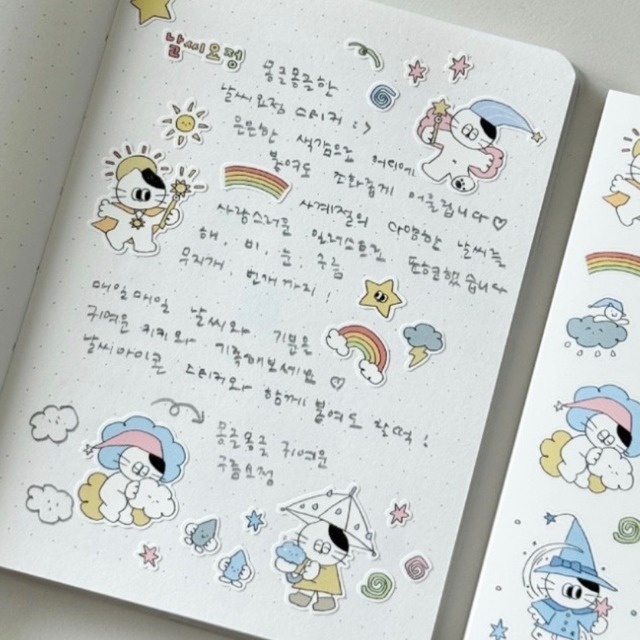 날씨요정
몽글몽글한
날씨요정 스티커 :>
은은한 색감으로 어디에
붙여도 조화롭게 어울립니다♡
사계절의 다양한 날씨를
사랑스러운 일러스트로 표현했습니다
해, 비, 눈, 구름
무지개, 번개까지!
매일매일 날씨와 기분을
귀여운 치치와 기록해보세요 ♡
날씨아이콘 스티커와 함께 붙여도 찰떡!
몽글몽글 귀여운
구름요정